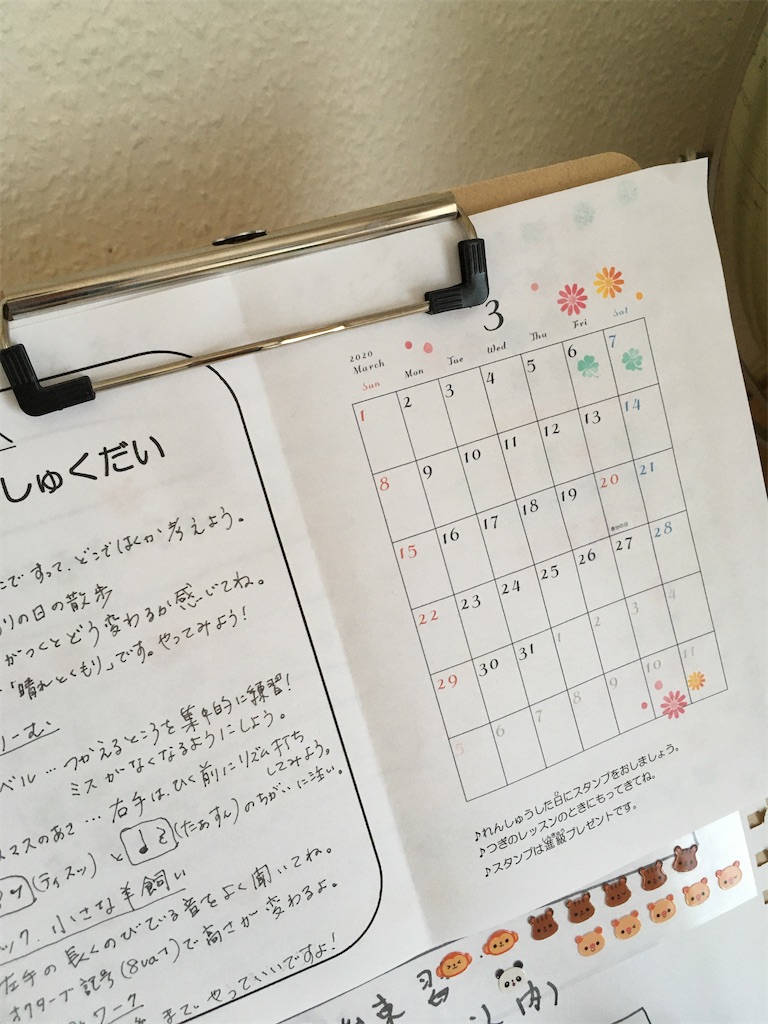 しゅくだい
ですって、どこではくか考えよう。
りの日の散歩
がつくとどう変わるか感じてね。
「晴れとくもり」です。やってみよう!
ベル…つかえるところを集中的に練習!
ミスがなくなるようにしよう。
スマスのあさ…右手は、ひく前にリズム打ち
してみよう。
(ティスッ)と (たぁすん)のちがいに注い。
ック.小さな羊飼い
左手の長くのびている音をよく聞いてね。
オクターブ記号(8va)で高さが変わるよ。
ワーク
までやっていいですよ!
2020
March
3
Sun Mon Tue Wed Thu Fri Sat
1 2 3 4 5 6 7
8 9 10 11 12 13 14
15 16 17 18 19 20 21
春分の日
22 23 24 25 26 27 28
29 30 31 1 2 3 4
5 6 7 8 9 10 11
♪れんしゅうした日にスタンプをおしましょう。
♪つぎのレッスンのときにもってきてね。
♪スタンプは進級プレゼントです。
練習
以内)